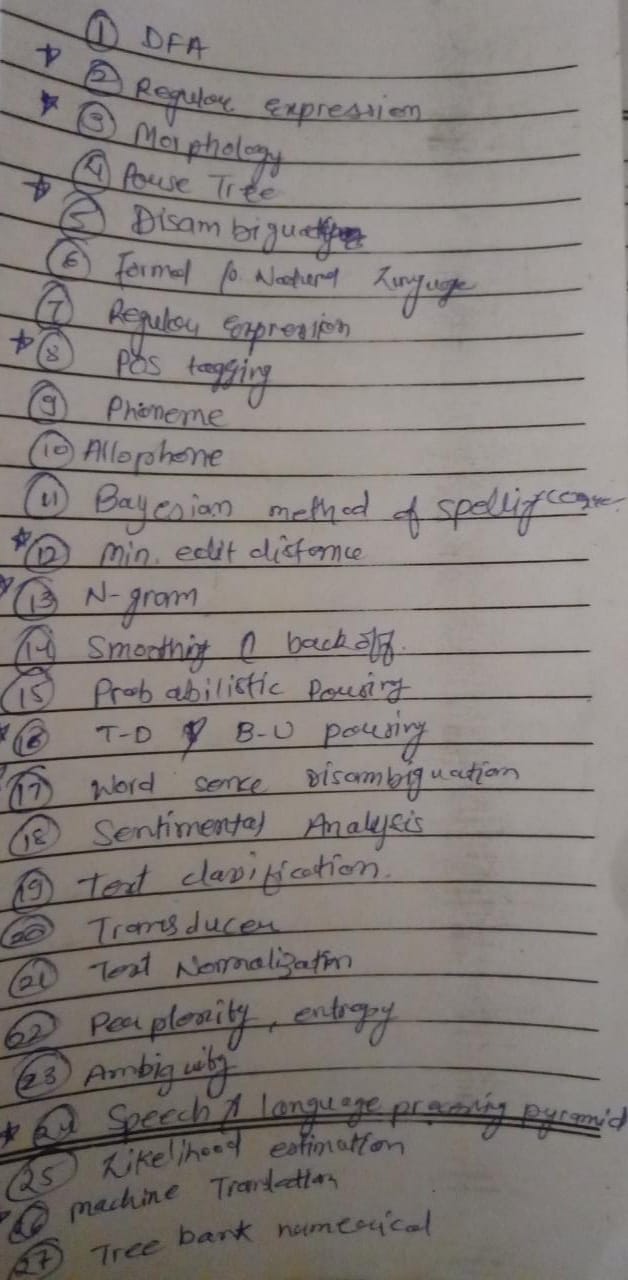 ① DFA
② Regular expression
③ Morphology
④ Parse Tree
⑤ Disambigua
⑥ Formal & Natural Language
⑦ Regular Expression
⑧ POS tagging
⑨ Phoneme
⑩ Allophone
⑪ Bayesian method of spelling
⑫ Min. edit distance
⑬ N-gram
⑭ Smoothing & back off.
⑮ Probabilistic Parsing
⑯ T-D & B-U parsing
⑰ Word sence Disambiguation
⑱ Sentimental Analysis
⑲ Text classification.
⑳ Transducer
㉑ Text Normalization
㉒ Perplexity, entropy
㉓ Ambiguity
㉔ Speech & language processing pyramid
㉕ Likelihood estimation
㉖ machine Translation
㉗ Tree bank numerical